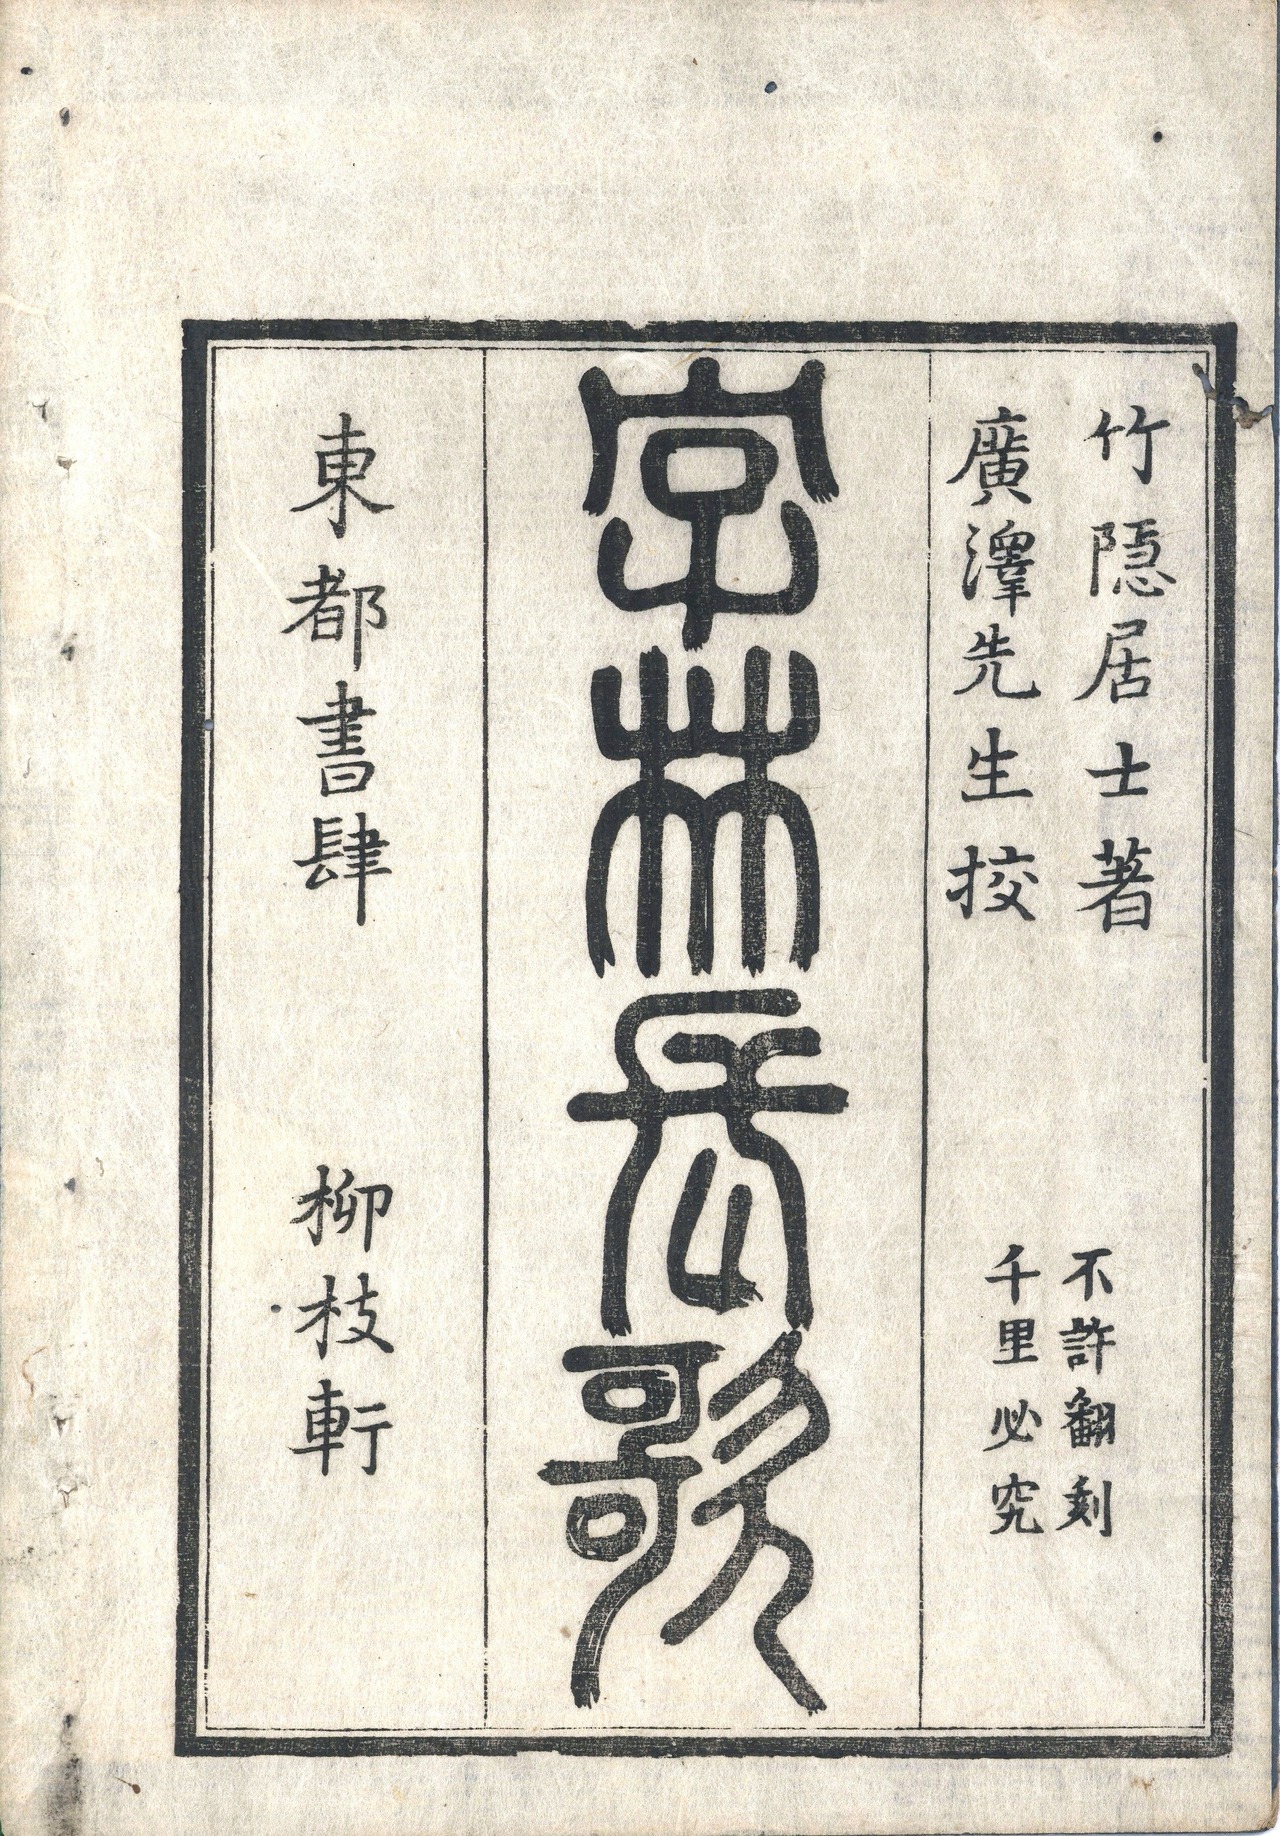 竹隠居士著
廣澤先生挍
不許翻刻
千里必究
字林長歌
東都書肆　柳枝軒